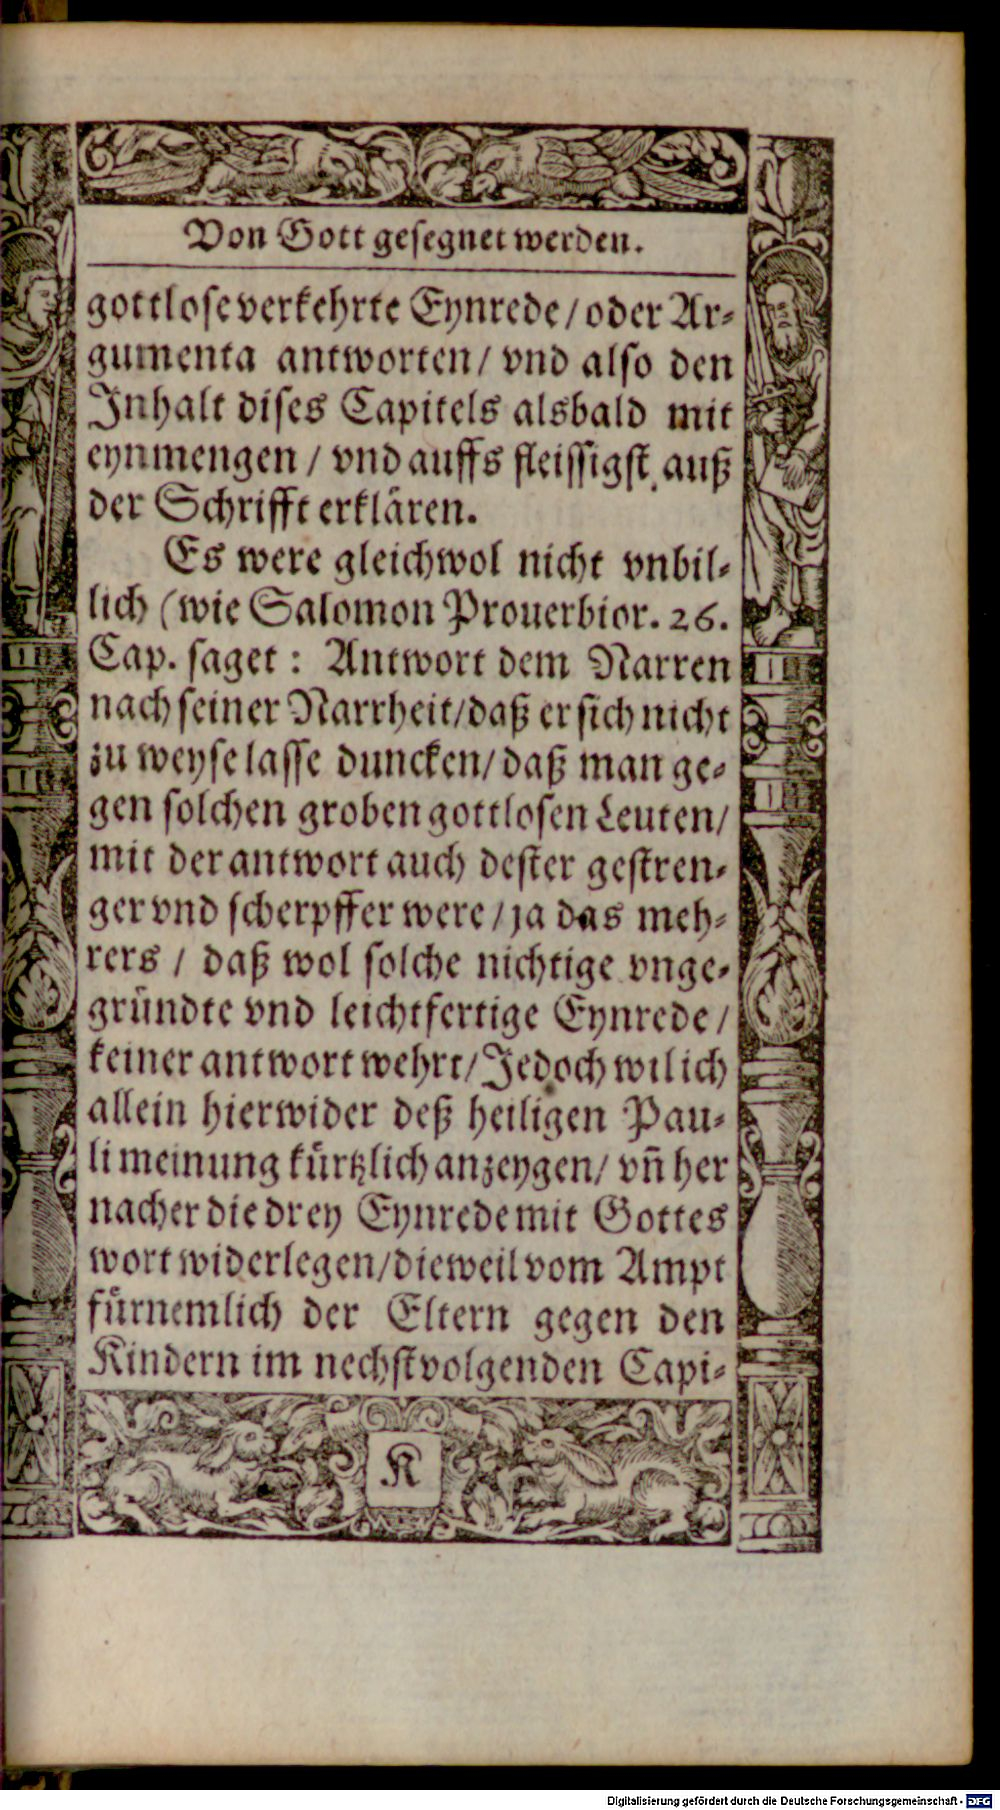 Von Gott gesegnet werden.
gottlose verkehrte Eynrede / oder Ar⸗
gumenta antworten / vnd also den
Inhalt dises Capitels alsbald mit
eynmengen / vnd auffs fleissigst auß
der Schrifft erklären.
Es were gleichwol nicht vnbil⸗
lich (wie Salomon Prouerbior. 26.
Cap. saget : Antwort dem Narren
nach seiner Narrheit / daß er sich nicht
zu weyse lasse duncken / daß man ge⸗
gen solchen groben gottlosen Leuten /
mit der antwort auch dester gestren⸗
ger vnd scherpffer were / ja das meh⸗
rers / daß wol solche nichtige vnge⸗
gründte vnd leichtfertige Eynrede /
keiner antwort wehrt / Jedoch wil ich
allein hierwider deß heiligen Pau⸗
li meinung kürtzlich anzeygen / vn̄ her
nacher die drey Eynrede mit Gottes
wort widerlegen / dieweil vom Ampt
fürnemlich der Eltern gegen den
Kindern im nechstvolgenden Capi⸗
K
Digitalisierung gefördert durch die Deutsche Forschungsgemeinschaft - DFG